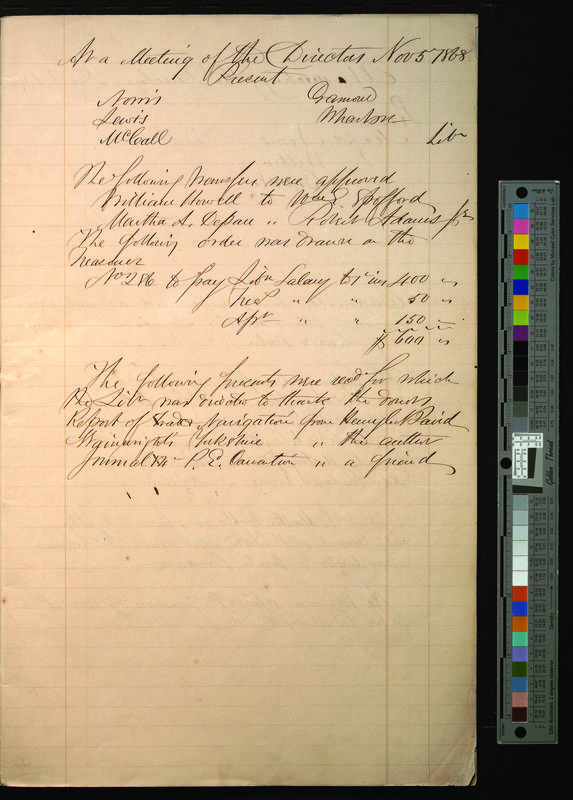 At a Meeting of the Directors Nov 5 1868
Present
Norris
Lewis
McCall
Wharton
Libn
The following transfers were approved
William Howell to Wm S.
Martha A. to Robert Adams Jr
The following order was drawn on the
Treasurer
No 286 to pay Libn Salary to 1st ins 400 "
Trea " " 50 "
" " 150 "
$ 600 "
The following presents were recd for which
the Libn was directed to thank the donors
Report of Trade & Navigation from Henry Baird
Wainwright's Yorkshire " the author
Journal P. E. Convention " a friend